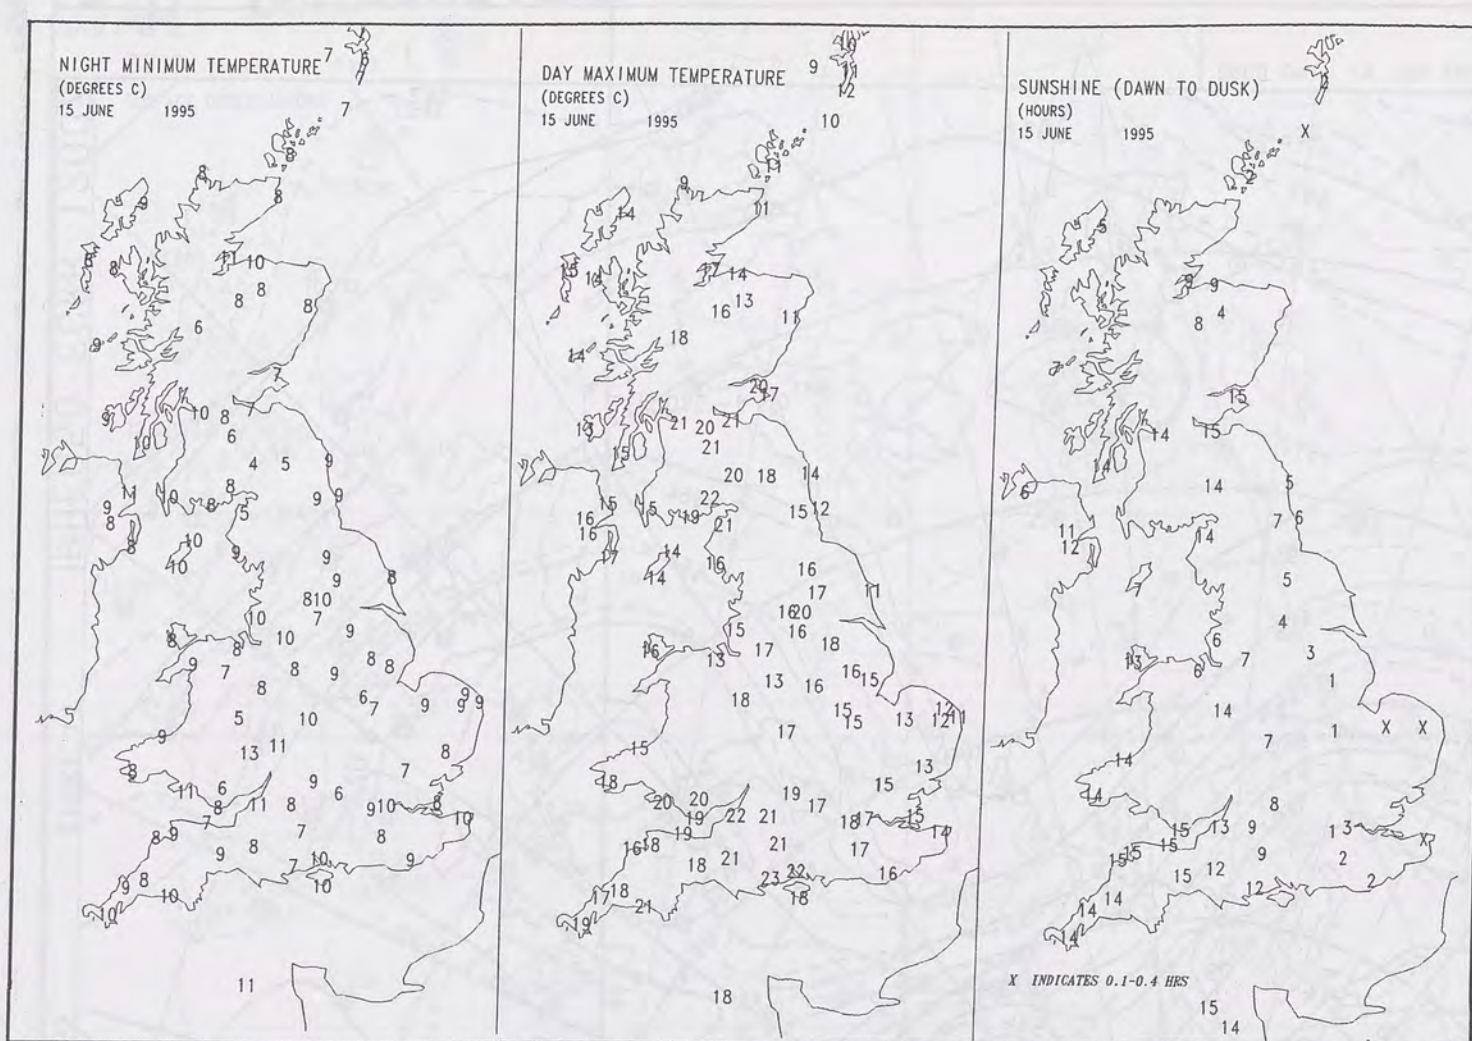 NIGHT MINIMUM TEMPERATURE
(DEGREES C)
15 JUNE 1995
7
6
7
8
8
8
9
8
8
11
10
8
8
8
6
9
7
10
8
7
9
6
10
4
5
9
11
10
8
8
9
9
9
8
5
10
8
9
10
9
9
8
8 10
10
7
9
8
8
10
9
7
8
9
8
8
8
6
7
9
9
9
9
5
10
9
13
11
8
8
7
11
6
9
6
8
11
8
9
10
8
10
7
8
9
7
8
9
8
7
10
9
9
8
10
10
10
11
DAY MAXIMUM TEMPERATURE
(DEGREES C)
15 JUNE 1995
10
9
11
12
10
11
9
14
11
14
14
13
16
11
18
14
20
17
21
20
21
21
15
20
18
14
22
15
15
19
16
16
15
12
21
17
14
16
14
16
17
11
16
20
16
15
18
16
17
13
13
16
15
18
16
15
15
13
12
12
11
17
15
13
18
15
20
20
19
17
19
22
21
18
17
15
14
19
16
18
21
17
18
21
22
23
16
18
17
18
21
19
18
SUNSHINE (DAWN TO DUSK)
(HOURS)
15 JUNE 1995
X
2
5
9
9
4
8
7
15
14
15
14
6
14
5
11
12
14
7
6
7
5
4
6
13
6
7
3
1
14
1
X
X
7
14
14
8
15
13
9
1
3
X
15
15
15
9
2
12
15
12
2
14
14
14
X INDICATES 0.1-0.4 HRS
15
14